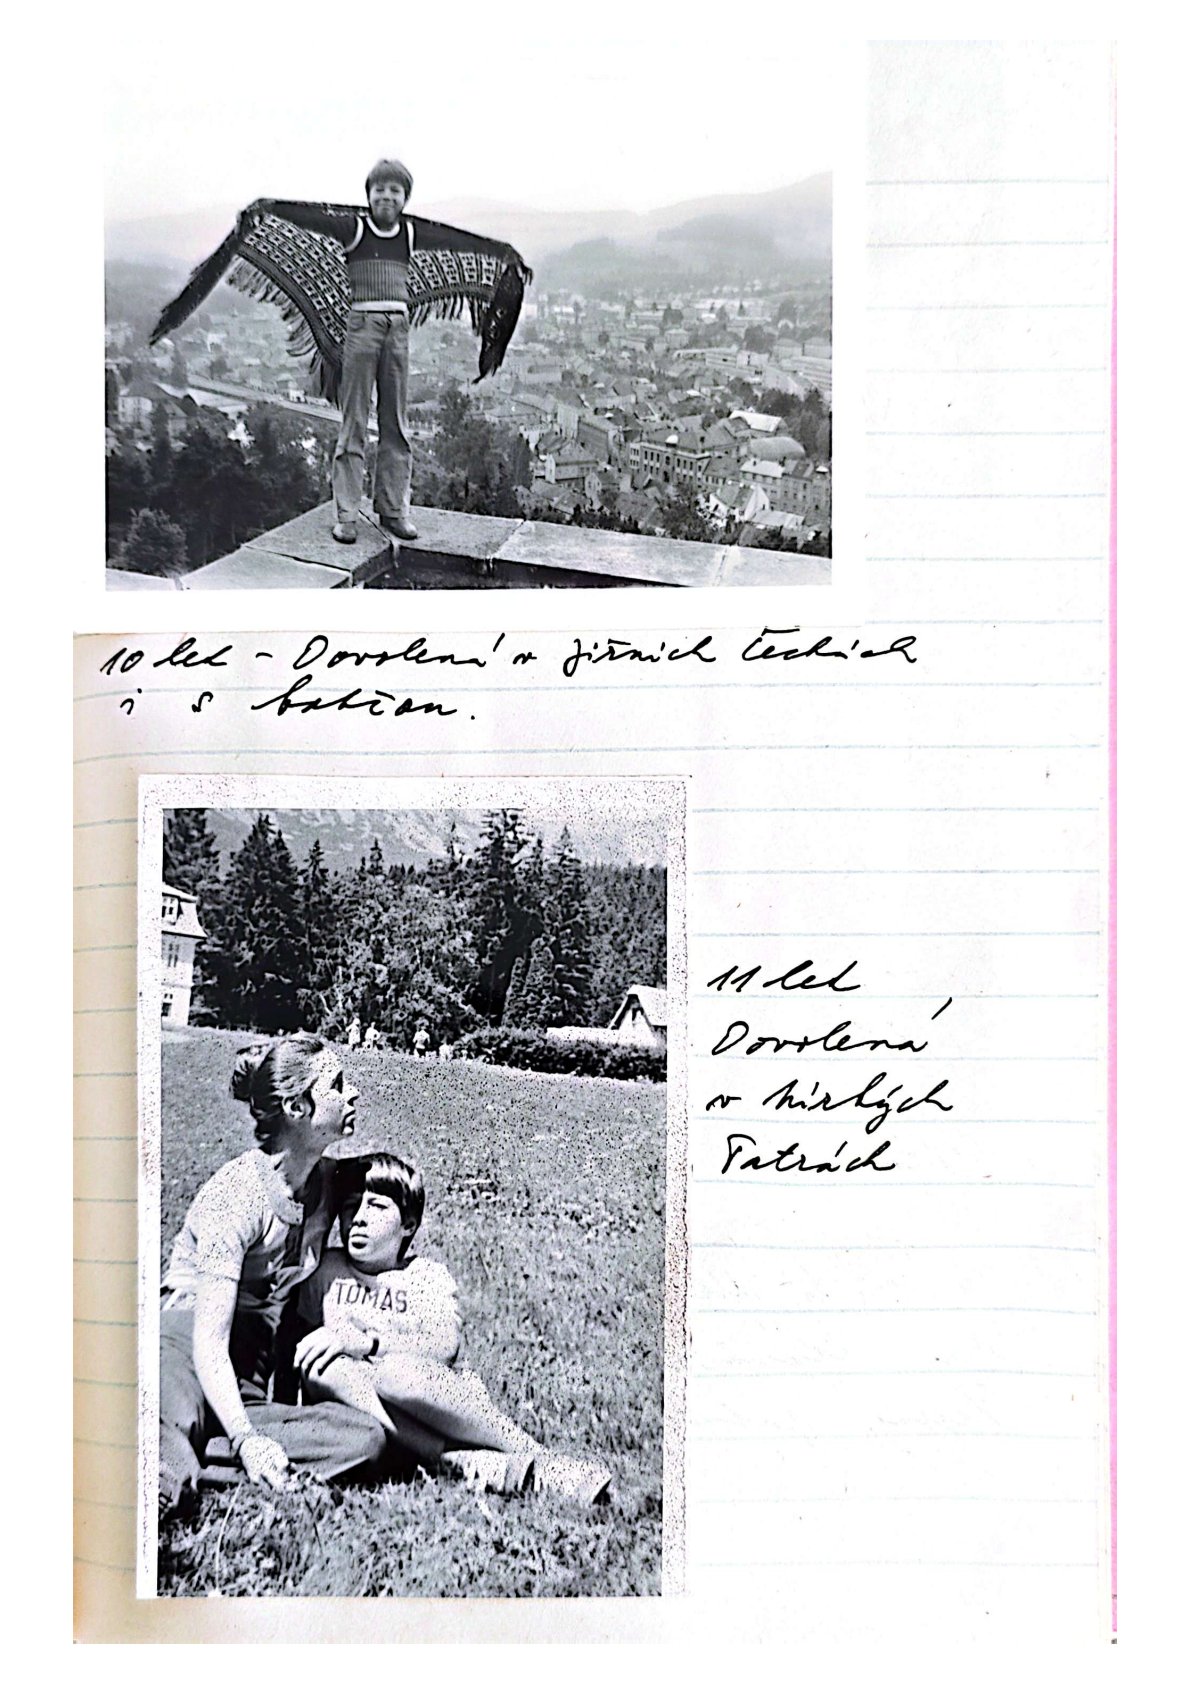 10 let - Dovolená v jižních Čechách
i s babčou.
TOMAS
11 let
Dovolená
v
Tatrách